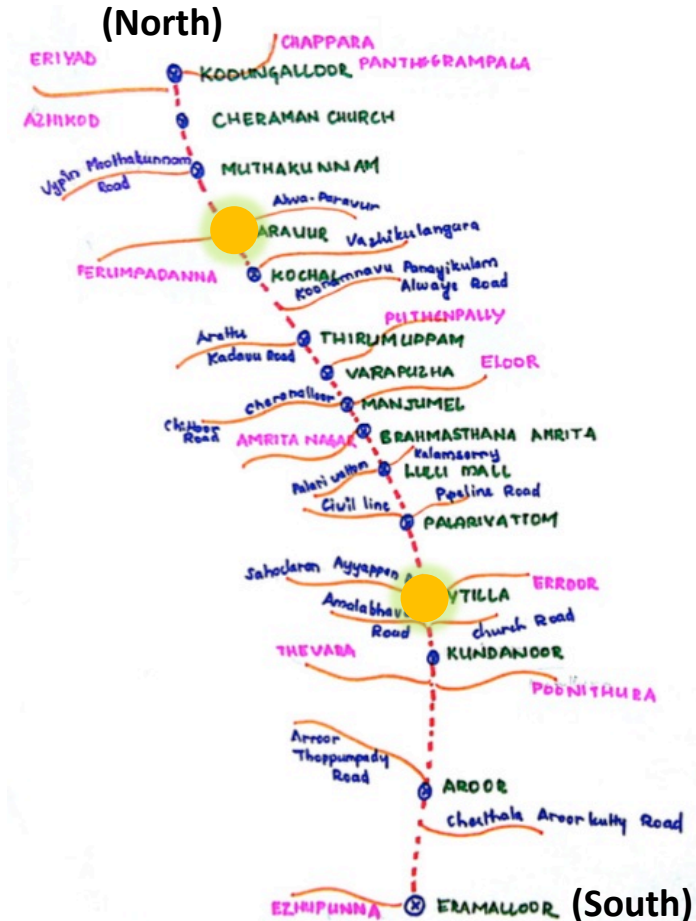 (North)
CHAPPARA
ERIYAD
KODUNGALLOOR
PANTHEGRAMPALA
AZHIKOD
CHERAMAN CHURCH
Vypin Moothakunnam
Road
MUTHAKUNNAM
Alwa-Paravur
ARAVUR
Vazhikulangara
PERUMPADANNA
KOCHAL
Koonamnavu Panayikulam
Alwaye Road
PUTHENPALLY
Arattu
Kadavu Road
THIRUMUPPAM
ELOOR
VARAPUZHA
Cheranalloor
MANJUMEL
Chittoor
Road
AMRITA NAGAR
BRAHMASTHANA AMRITA
Kalamserry
Palari vattom
LULU MALL
Pipeline Road
Civil line
PALARIVATTOM
Sahodaran Ayyappan
ERROOR
YTILLA
Amalabhav
Road
Church Road
THEVARA
KUNDANOOR
POONITHURA
Arroor
Thoppumpady
Road
AROOR
Cherthala Aroorkutty Road
EZHUPUNNA
ERAMALLOOR
(South)